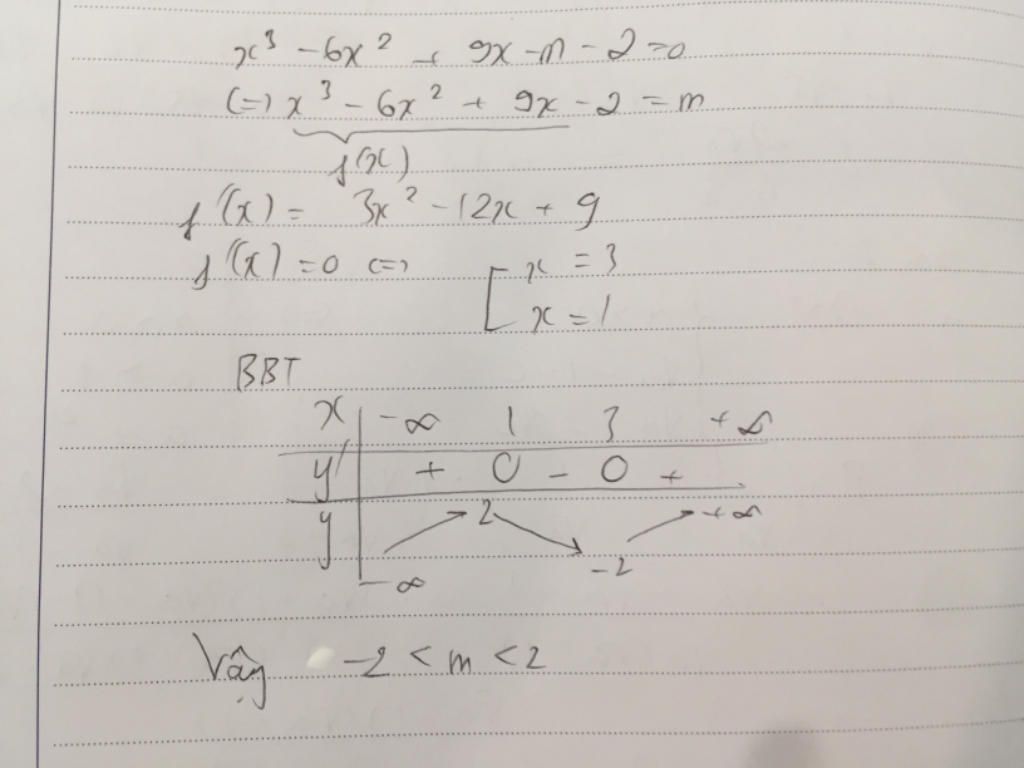 x³ - 6x² + 9x - m - 2 = 0
(=) x³ - 6x² + 9x - 2 = m
f(x)
f'(x) = 3x² - 12x + 9
f'(x) = 0 (=) [ x = 3
x = 1
BBT
x | -∞ 1 3 +∞
y' | + 0 - 0 +
y | ↗ 2 ↘ -2 ↗ +∞
-∞
Vậy -2 < m < 2